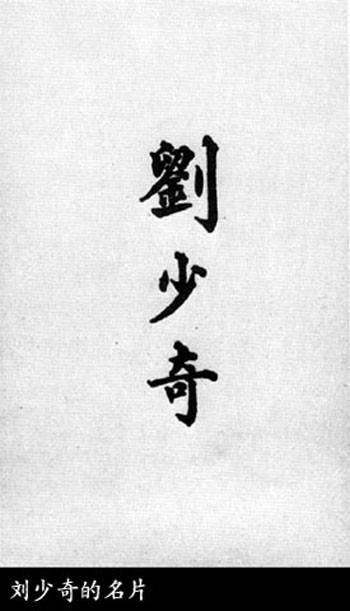 劉少奇
刘少奇的名片